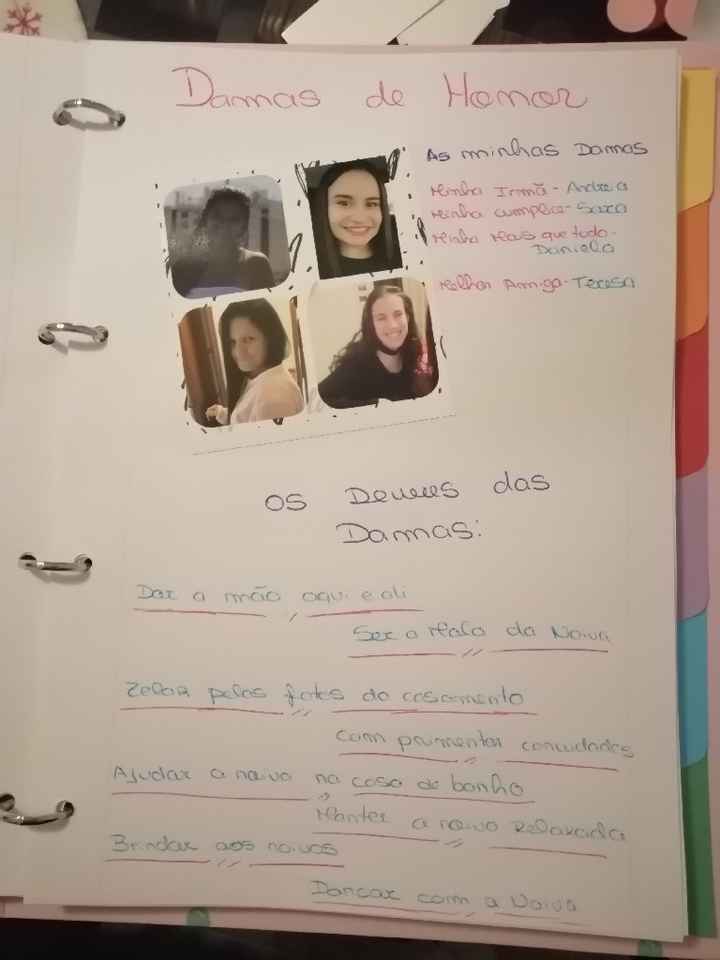 Damas de Honor
As minhas Damas
Minha Irmã - Andreia
Minha cumplice - Sara
Minha Mais que tudo -
Daniela
Melhor Amiga - Teresa
Os Deveres das
Damas:
Dar a mão aqui e ali
Ser a Mala da Noiva
Zelar pelas fotos do casamento
Comprimentar convidados
Ajudar a noiva na casa de banho
Manter a noiva Relaxada
Brindar aos noivos
Dançar com a Noiva